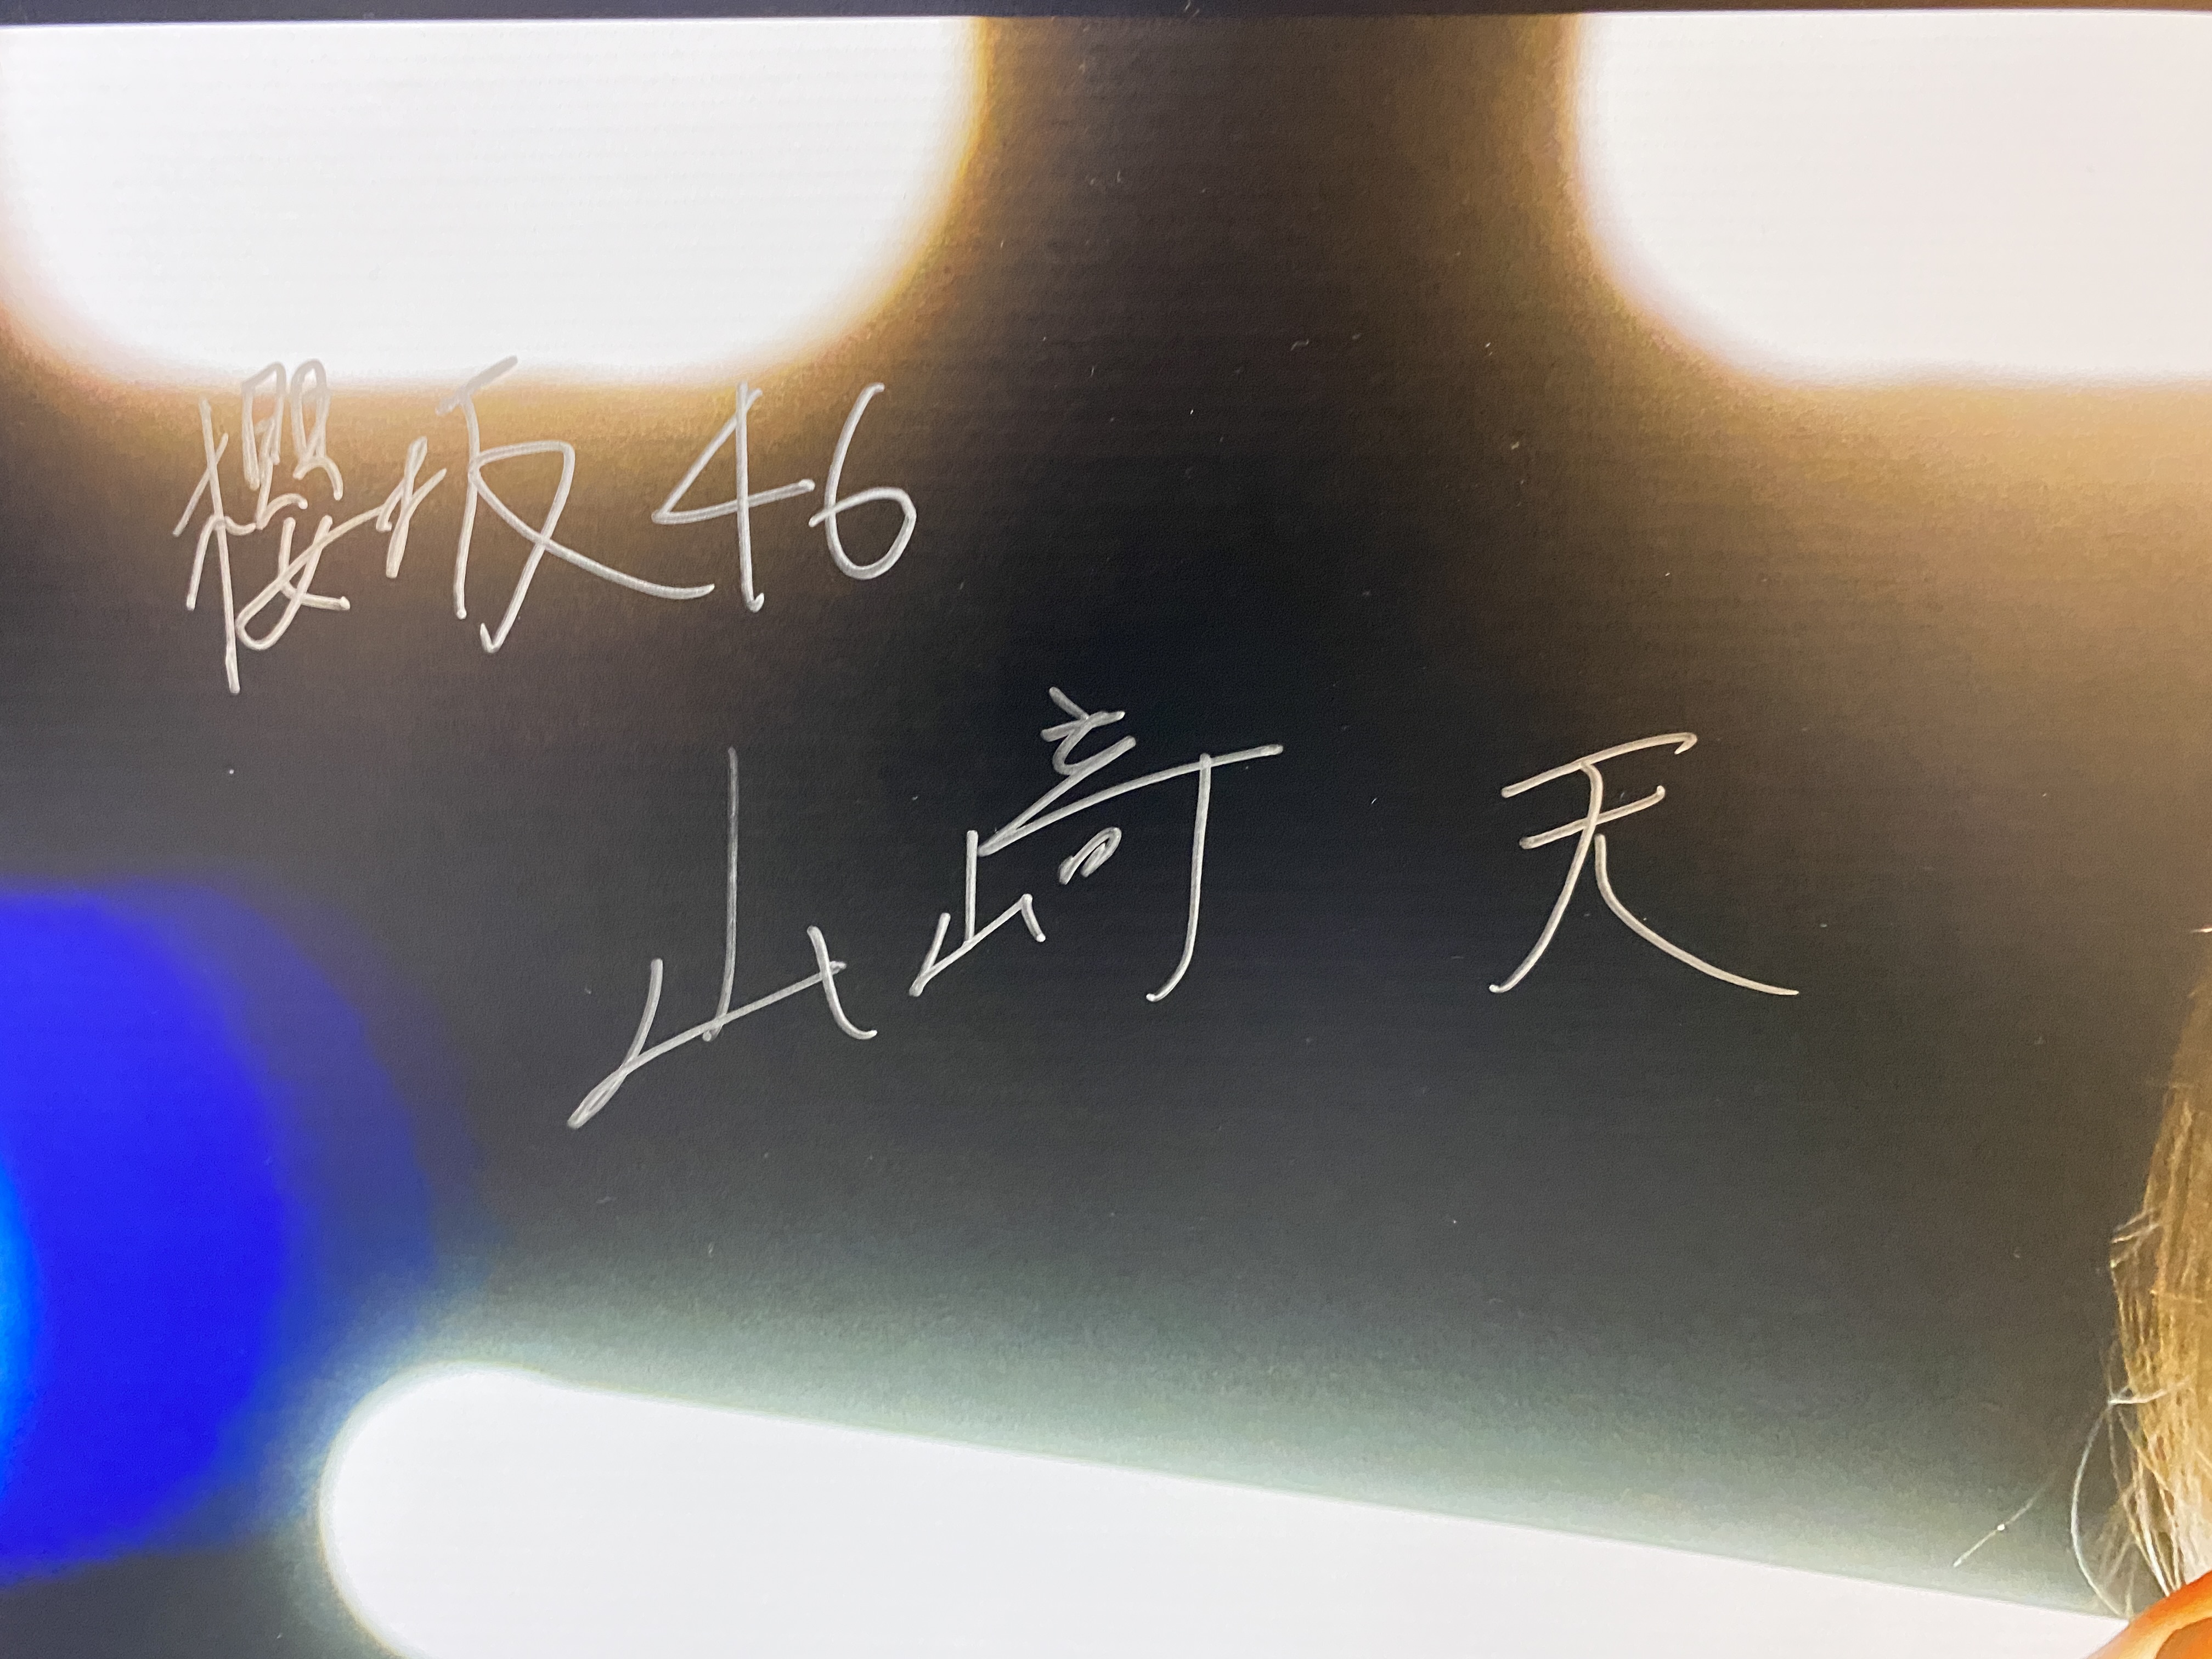 櫻坂46
山﨑 天